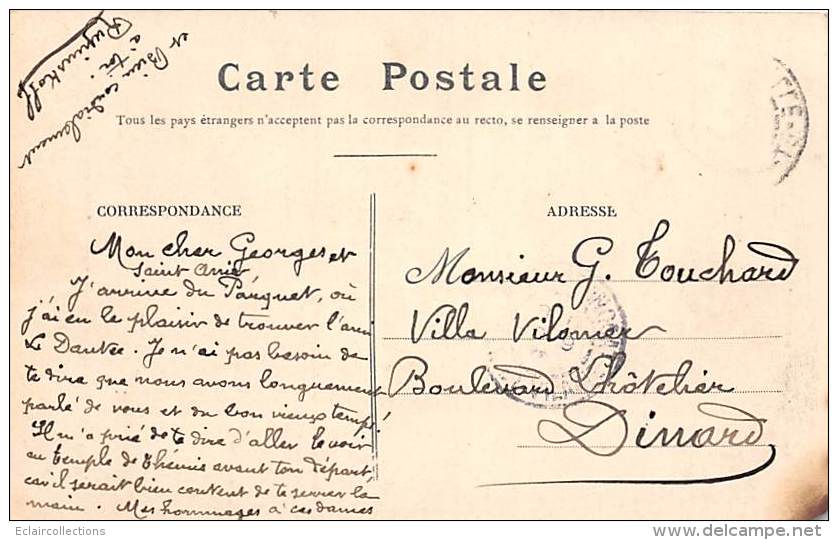 Carte Postale
Tous les pays étrangers n'acceptent pas la correspondance au recto, se renseigner a la poste
CORRESPONDANCE
Mon cher Georges et
Saint
J'arrive du Parquet, où
j'ai eu le plaisir de trouver l'ami
Le Dantec. Je n'ai pas besoin de
te dire que nous avons longuement
parlé de vous et du bon vieux temps
Il m'a prié de te dire d'aller le voir
au temple de Thémis avant ton départ,
car il serait bien content de te serrer la
main. Mes hommages à ces dames
et Bien cordialement
à toi.
ADRESSE
Monsieur G. Touchard
Villa Vilomer
Boulevard Châtelier
Dinard
Eclaircollections
www.delcampe.net